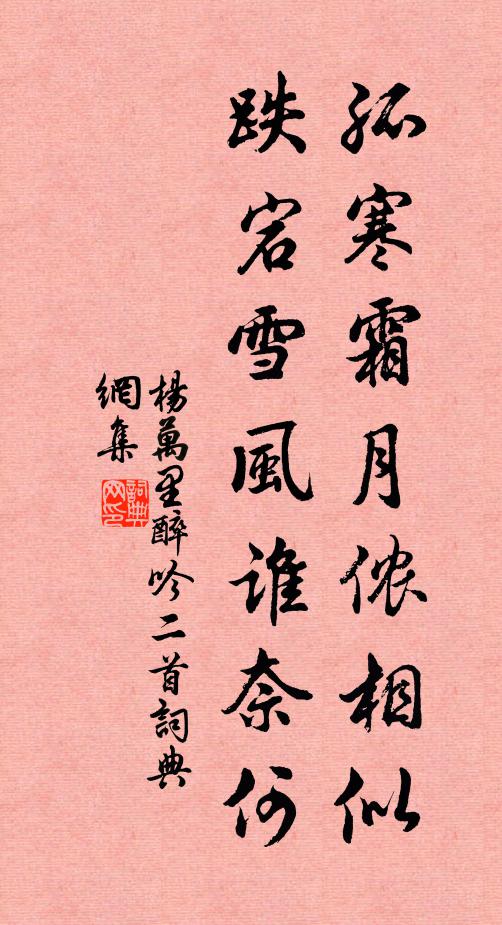 孤寒霜月侬相似
跌宕雪風谁奈何
楊萬里醉吟二首詞典
網集
詞典网印